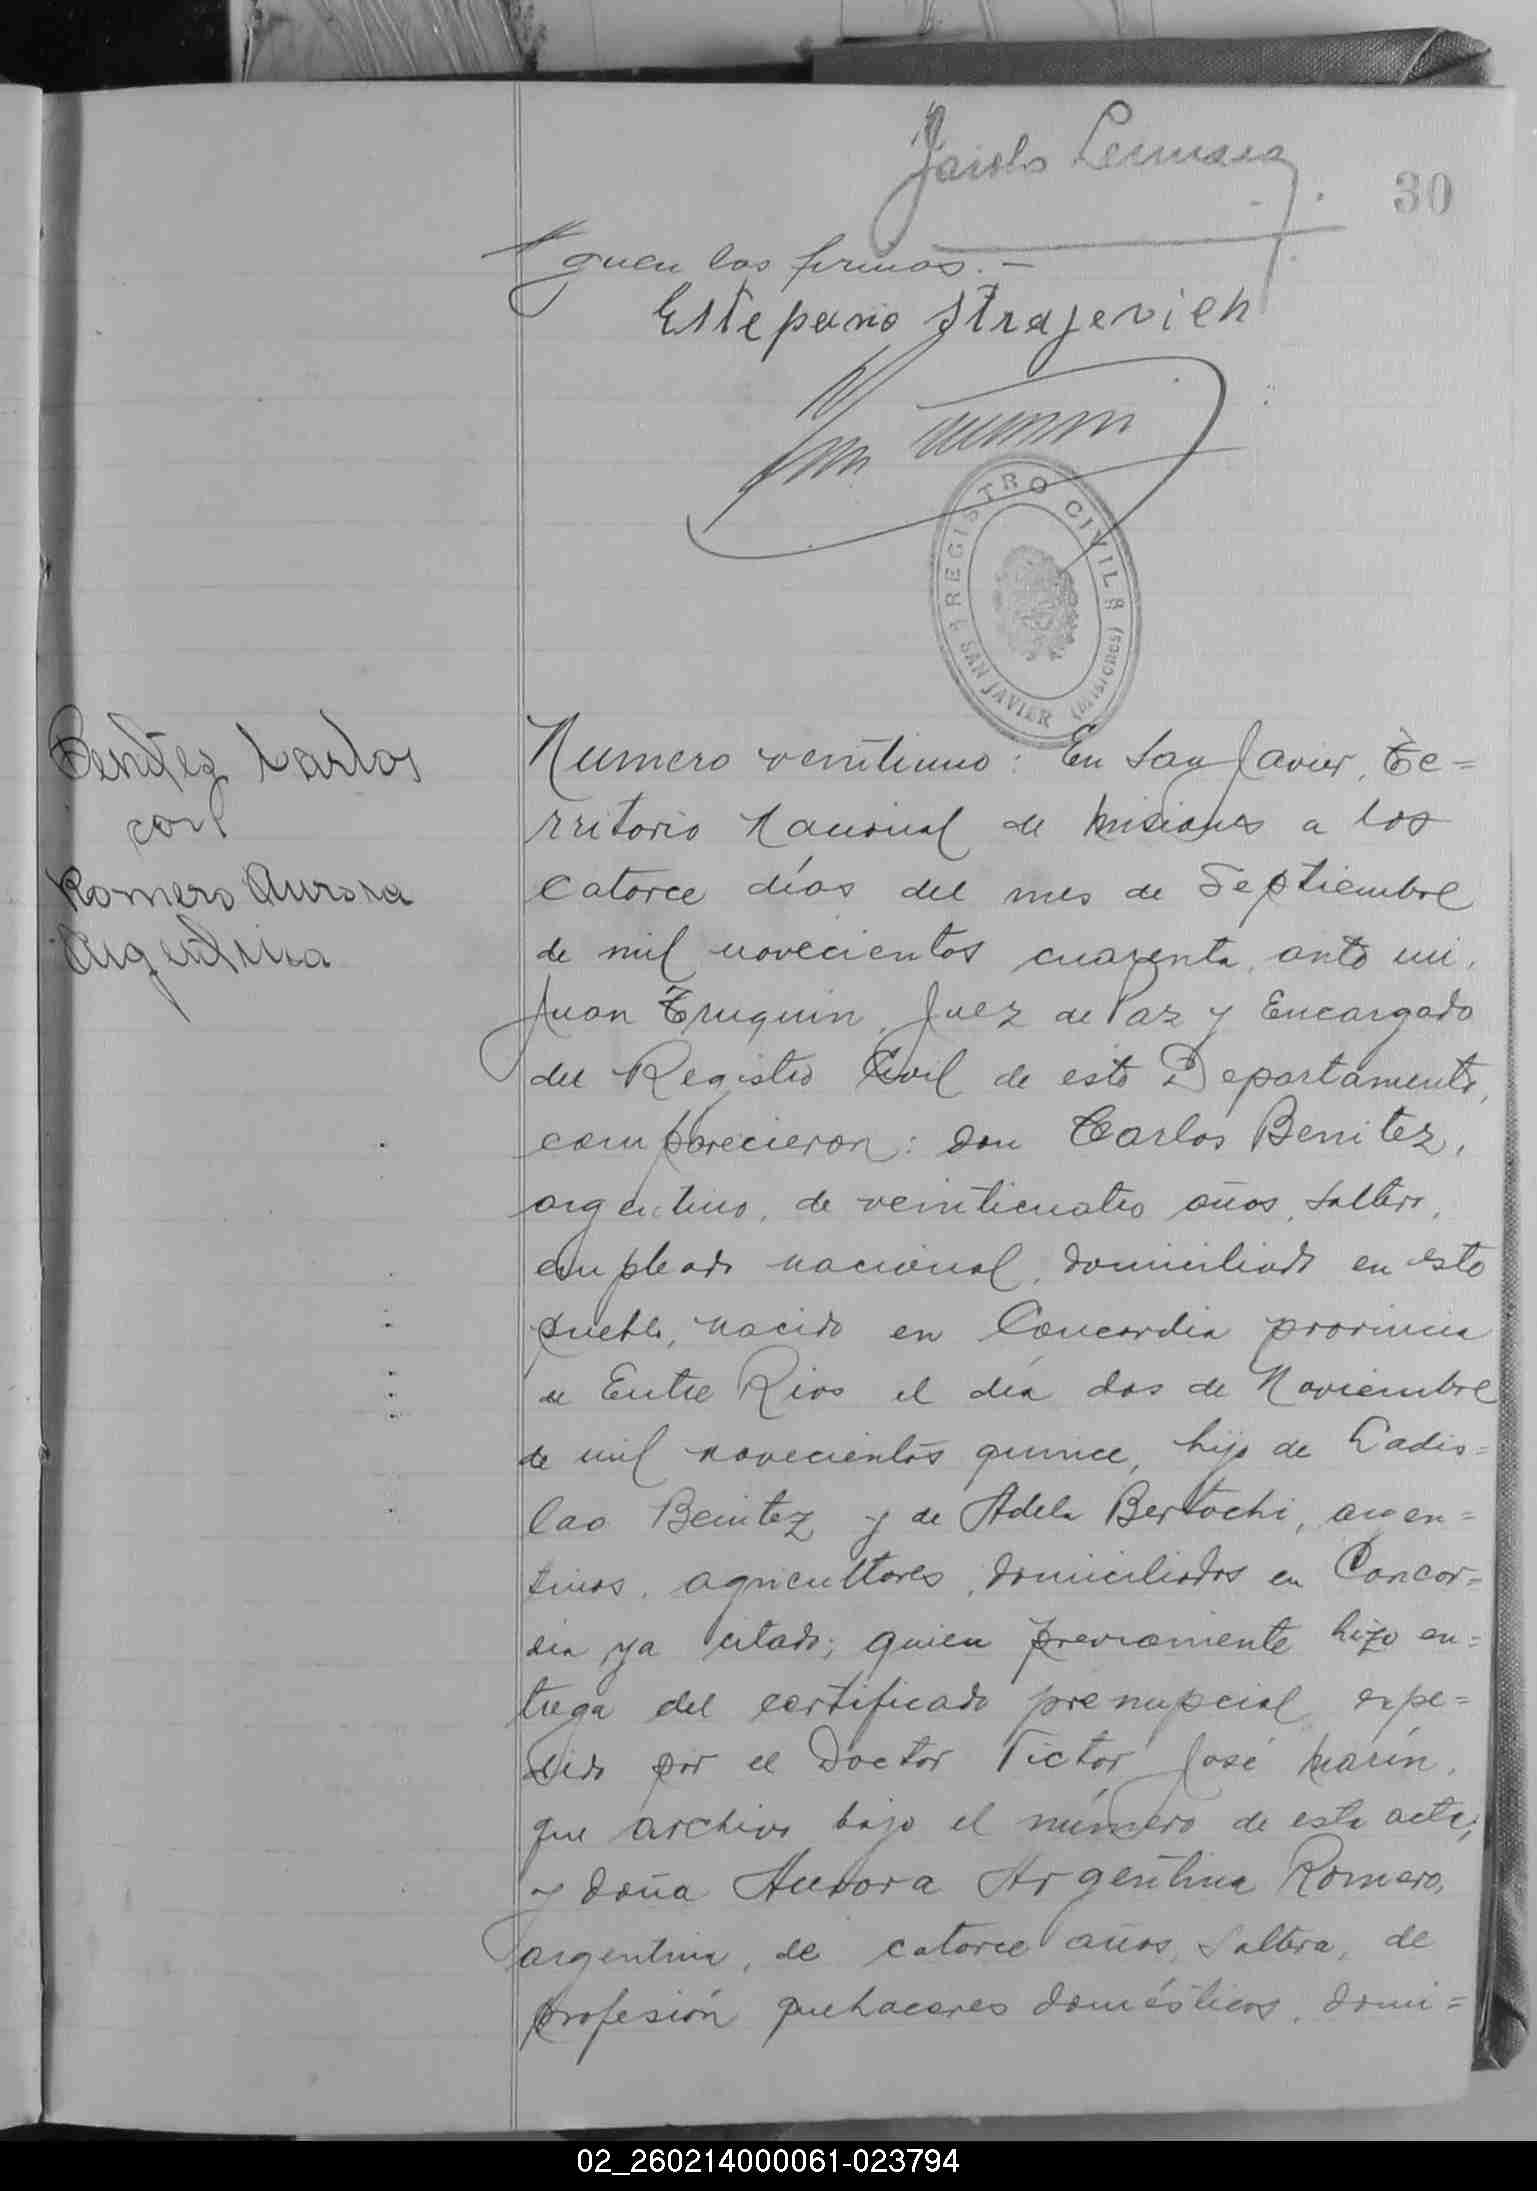 30
guen las firmas. –
Estepano Strajevich
REGISTRO CIVIL
SAN JAVIER (MISIONES)
Benitez Carlos
con
Romero Aurora
Argentina
Numero veintiuno: En San Javier, Te=
rritorio Nacional de Misiones a los
catorce días del mes de Septiembre
de mil novecientos cuarenta, ante mi,
Juan Truquin, Juez de Paz y Encargado
del Registro Civil de este Departamento,
comparecieron: don Carlos Benitez,
argentino, de veinticuatro años, soltero,
empleado nacional, domiciliado en este
pueblo, nacido en Concordia provincia
de Entre Rios el día dos de Noviembre
de mil novecientos quince, hijo de Ladis=
lao Benitez y de Adela Bertochi, argen=
tinos, agricultores, domiciliados en Concor=
dia ya citado; quien previamente hizo en=
trega del certificado prenupcial expe=
dido por el Doctor Victor José Marín,
que archivo bajo el número de esta acta;
y doña Aurora Argentina Romero,
argentina, de catorce años, soltera, de
profesión quehaceres domésticos, domi=
02_260214000061-023794